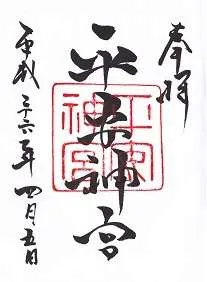 奉拝
平安神宮
平安
神宮
平成二十六年四月五日